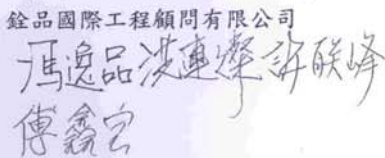 銓品國際工程顧問有限公司
馮逸品 洪連燦 許朕峰
傅鑫宏